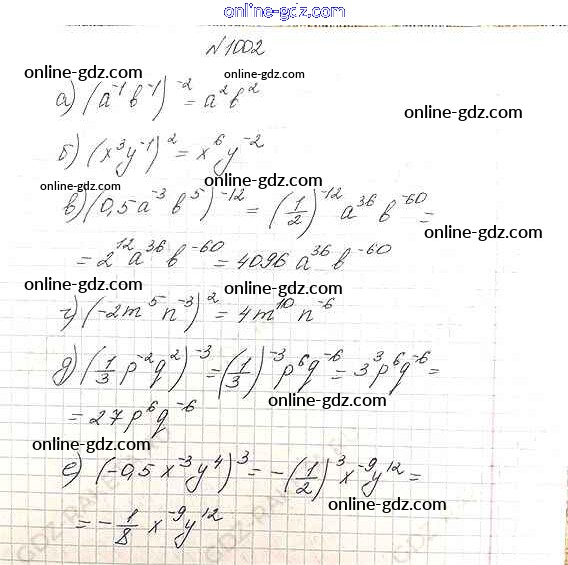 online-gdz.com
№1002
online-gdz.com online-gdz.com
а) (a⁻¹b⁻¹)⁻² = a²b²
online-gdz.com
б) (x³y⁻¹)² = x⁶y⁻²
online-gdz.com online-gdz.com
в) (0,5a⁻³b⁵)⁻¹² = (1/2)⁻¹²a³⁶b⁻⁶⁰ =
online-gdz.com
= 2¹²a³⁶b⁻⁶⁰ = 4096a³⁶b⁻⁶⁰
online-gdz.com online-gdz.com
г) (-2m⁵n⁻³)² = 4m¹⁰n⁻⁶
online-gdz.com
д) (1/3 p⁻²q²)⁻³ = (1/3)⁻³p⁶q⁻⁶ = 3³p⁶q⁻⁶ =
online-gdz.com
= 27p⁶q⁻⁶
online-gdz.com
е) (-0,5x⁻³y⁴)³ = -(1/2)³x⁻⁹y¹² =
online-gdz.com
= -1/8 x⁻⁹y¹²